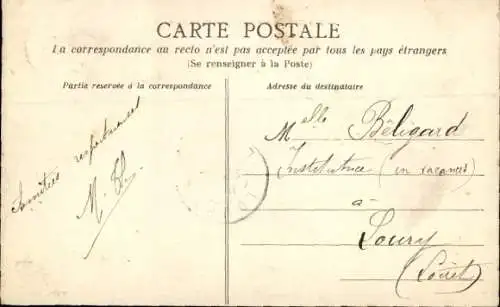 CARTE POSTALE
La correspondance au recto n'est pas acceptée par tous les pays étrangers
(Se renseigner à la Poste)
Partie reservée à la correspondance
Adresse du destinataire
respectueuses
M. H.
Melle Béligard
Institutrice (en vacances)
à
Loury
(Loiret)